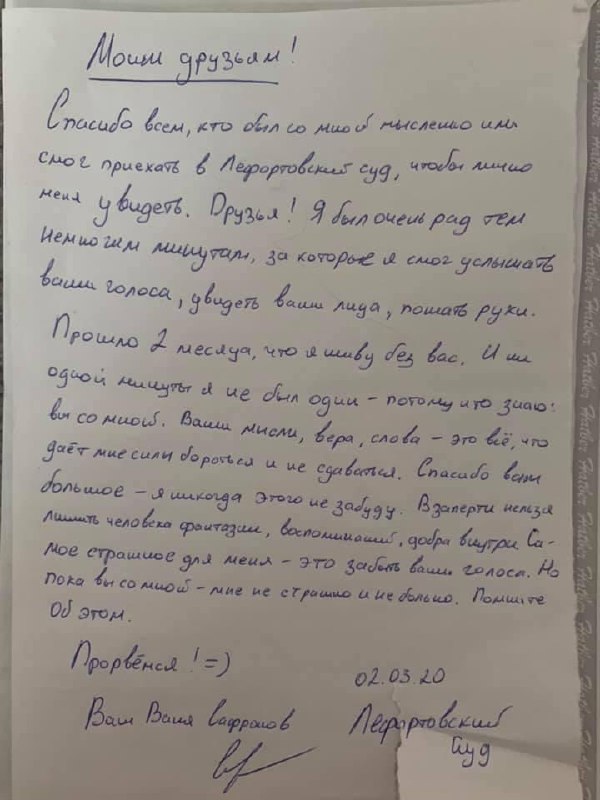 Моим друзьям!
Спасибо всем, кто был со мной мысленно или
смог приехать в Лефортовский суд, чтобы лично
меня увидеть. Друзья! Я был очень рад тем
немногим минутам, за которые я смог услышать
ваши голоса, увидеть ваши лица, пожать руки.
Прошло 2 месяца, что я живу без вас. И ни
одной минуты я не был один – потому что знаю:
вы со мной. Ваши мысли, вера, слова – это всё, что
даёт мне силы бороться и не сдаваться. Спасибо вам
большое – я никогда этого не забуду. Взаперти нельзя
лишить человека фантазии, воспоминаний, добра внутри. Са-
мое страшное для меня – это забыть ваши голоса. Но
пока вы со мной – мне не страшно и не больно. Помните
об этом.
Прорвёмся! =)
02.03.20
Ваш Ваня Сафронов
Лефортовский
суд